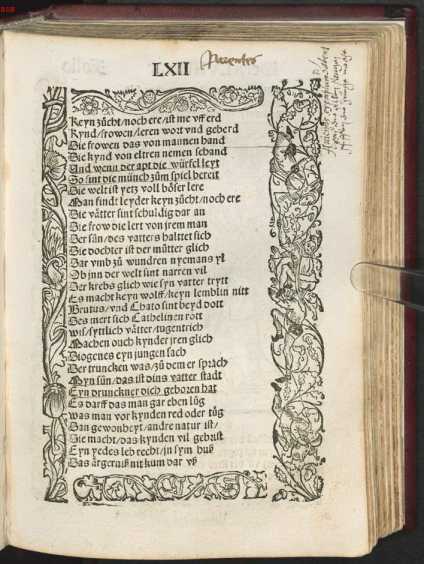 LXII
Parentes
Keyn zücht / noch ere / ist me vff erd
Kynd / frowen / leren wort vnd geberd
Die frowen das von mannen hand
Die kynd von eltren nemen schand
Vnd wenn der apt die würfel leyt
So sint die münch züm spiel bereit
Die welt ist yetz voll böser lere
Man findt leyder keyn zücht / noch ere
Die vätter sint schuldig dar an
Die frow die lert von jrem man
Der sün / des vatters halttet sich
Die dochter ist der mütter glich
Dar vmb zü wundren nyemans yl
Ob jnn der welt sint narren vil
Der krebs glich wie syn vatter trytt
Es macht keyn wolff / keyn lemblin nitt
Brutus / vnd Chato sint beyd dott
Des mert sich Cathelinen rott
Wis / syttlich vätter / tugentrich
Machen ouch kynder jren glich
Diogenes eyn jungen sach
Der truncken was / zü dem er sprach
Myn sün / das ist dins vatter stadt
Eyn drunckner dich geboren hat
Es darff das man gar eben lüg
was man vor kynden red oder tüg
Dan gewonheyt / andre natur ist /
Die macht / das kynden vil gebrist
Eyn yedes leb recht / in sym huß
Das ärgerniß nit kum dar vß